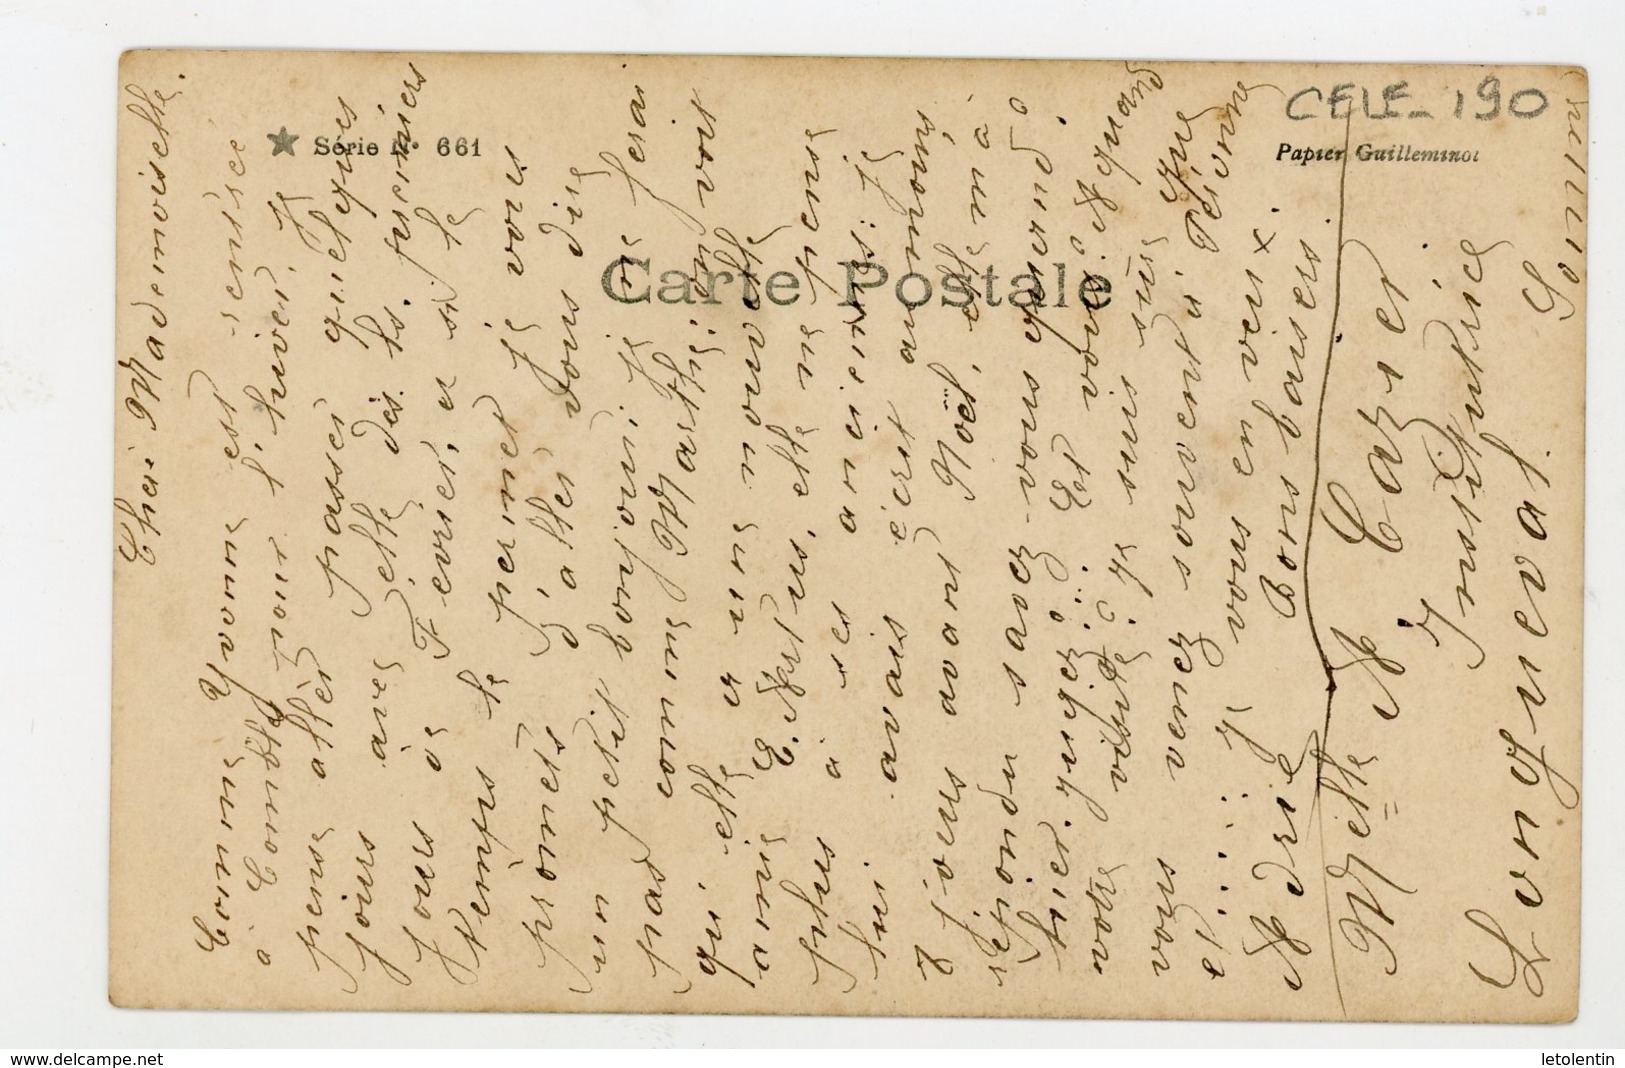 ★ Série N° 661
Carte Postale
Papier Guilleminot
CELE - 190
Chère Mademoiselle.
Comme Yvonne est rentrée
à Commerl pour l'hiver. Je
pense aller passer quelques
jours avec elle dès les premiers
jours de Février, er si le
temps le permet je vous
promets d'aller vous dire
un petit bonjour; je ne ferai
pas comme Marthe; vous
qui elle a une nouvelle
amie Eigstus, elle ne pense
plus à ses anciennes: Je
lui avais écrit au moins
8 jours avant Noël, elle m'a
répondu savez-vous quand?
hier. jugez!! Et vous? A quand
votre visite?: Je suis sûre que
vous venez souvent à Péronne
et..... je vous en veux.
Bons baisers.
Adrie
Melle A Cazier
Institutrice
Longueval
Somme)
www.delcampe.net
letolentin